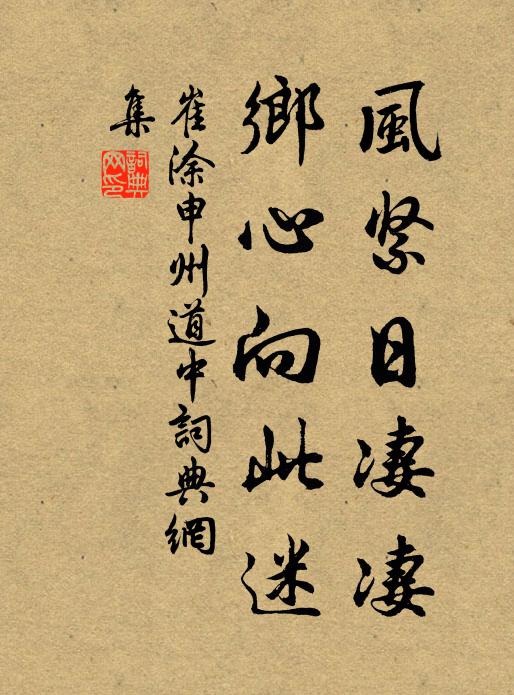 風緊日淒淒
鄉心向此迷
崔涂申州道中詞典網
集
詞典網印